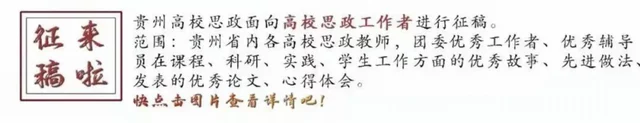 征稿
来啦
贵州高校思政面向高校思政工作者进行征稿。
范围：贵州省内各高校思政教师，团委优秀工作者、优秀辅导
员在课程、科研、实践、学生工作方面的优秀故事、先进做法、
发表的优秀论文、心得体会。
快点击图片查看详情吧！